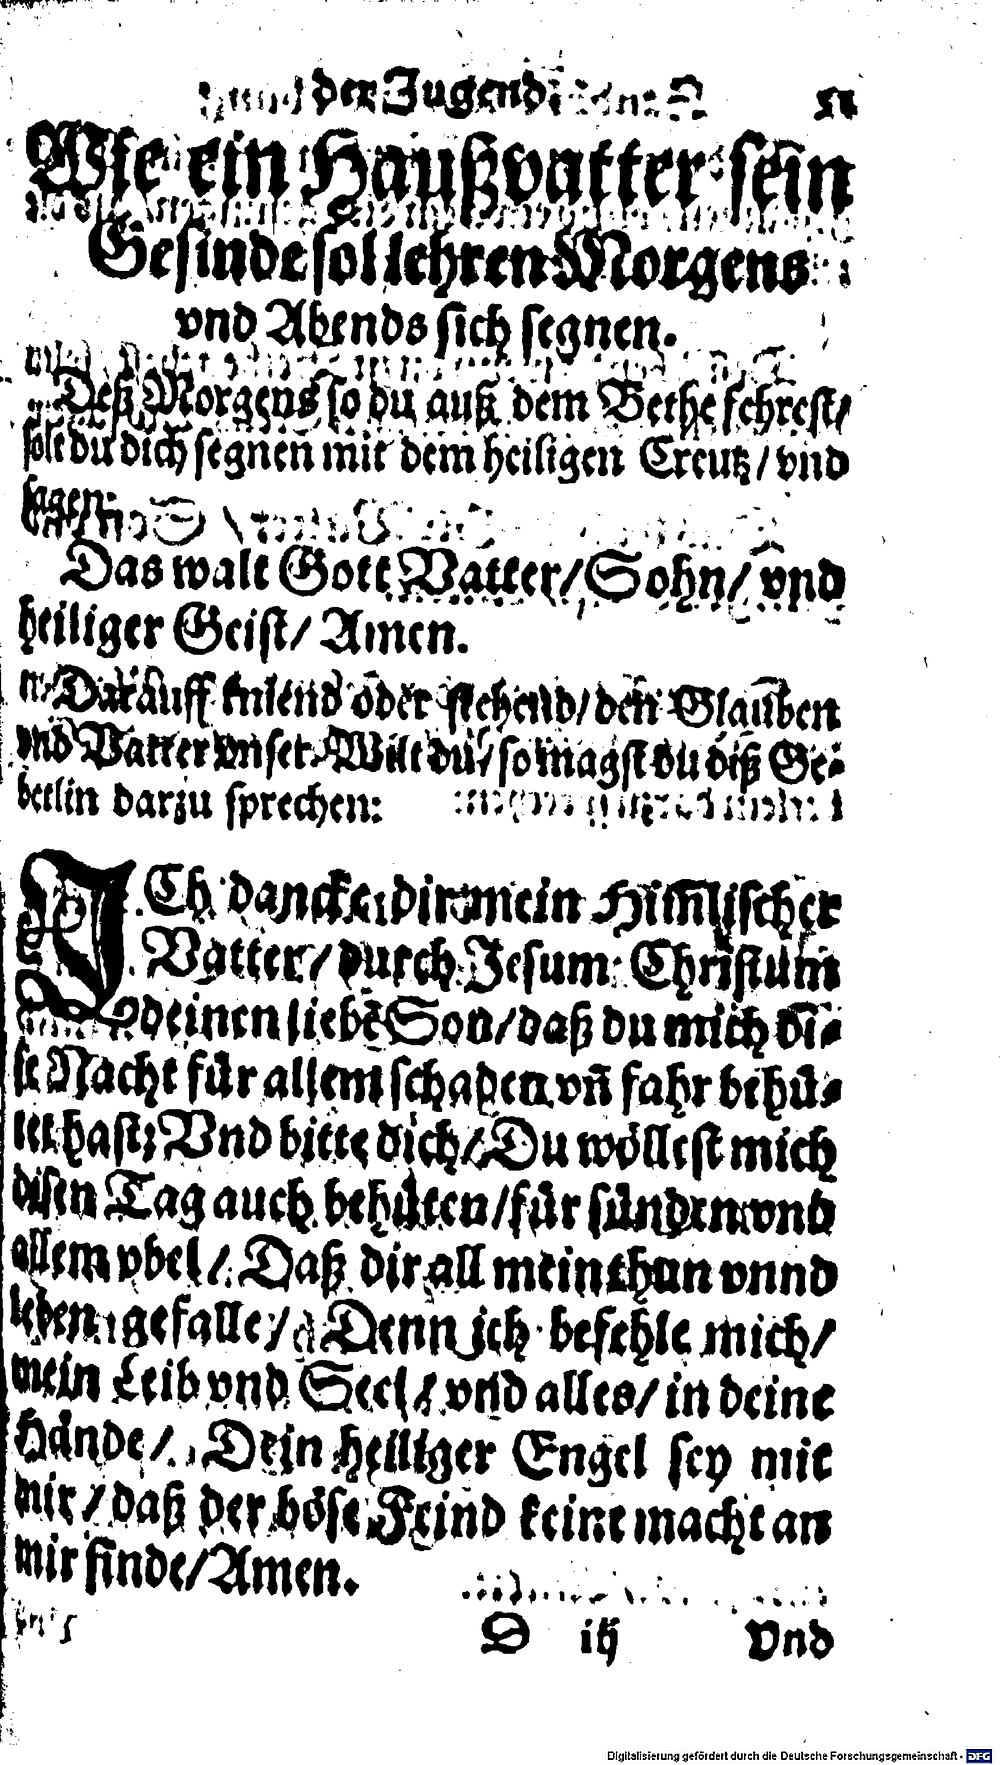 der Jugend.
Wie ein Haußvatter sein
Gesinde sol lehren Morgens
vnd Abends sich segnen.
Deß Morgens so du auß dem Bethe fehrest/
solt du dich segnen mit dem heiligen Creutz/ vnd
sagen:
Das walt Gott Vatter/ Sohn/ vnd
heiliger Geist/ Amen.
Darauff kniend oder stehend/ den Glauben
vnd Vatter vnser. Wilt du/ so magst du diß Ge-
betlin darzu sprechen:
ICh dancke dir mein Him̃lischer
Vatter/ durch Jesum Christum
deinen liebē Son/ daß du mich di-
se Nacht für allem schaden vñ fahr behü-
tet hast; Vnd bitte dich/ Du wöllest mich
disen Tag auch behüten/ für sünden vnd
allem vbel/ Daß dir all mein thun vnnd
leben gefalle/ Denn ich befehle mich/
mein Leib vnd Seel/ vnd alles/ in deine
Hände/ Dein heiliger Engel sey mit
mir/ daß der böse Feind keine macht an
mir finde/ Amen.
D iij Vnd
Digitalisierung gefördert durch die Deutsche Forschungsgemeinschaft - DFG